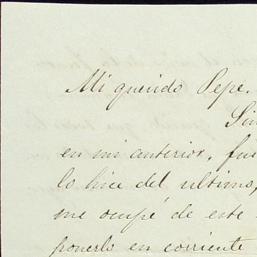 Mi querido Pepe.
Sin
en mi anterior, fue
lo hice del ultimo,
me ocupé de este
ponerlo en corriente